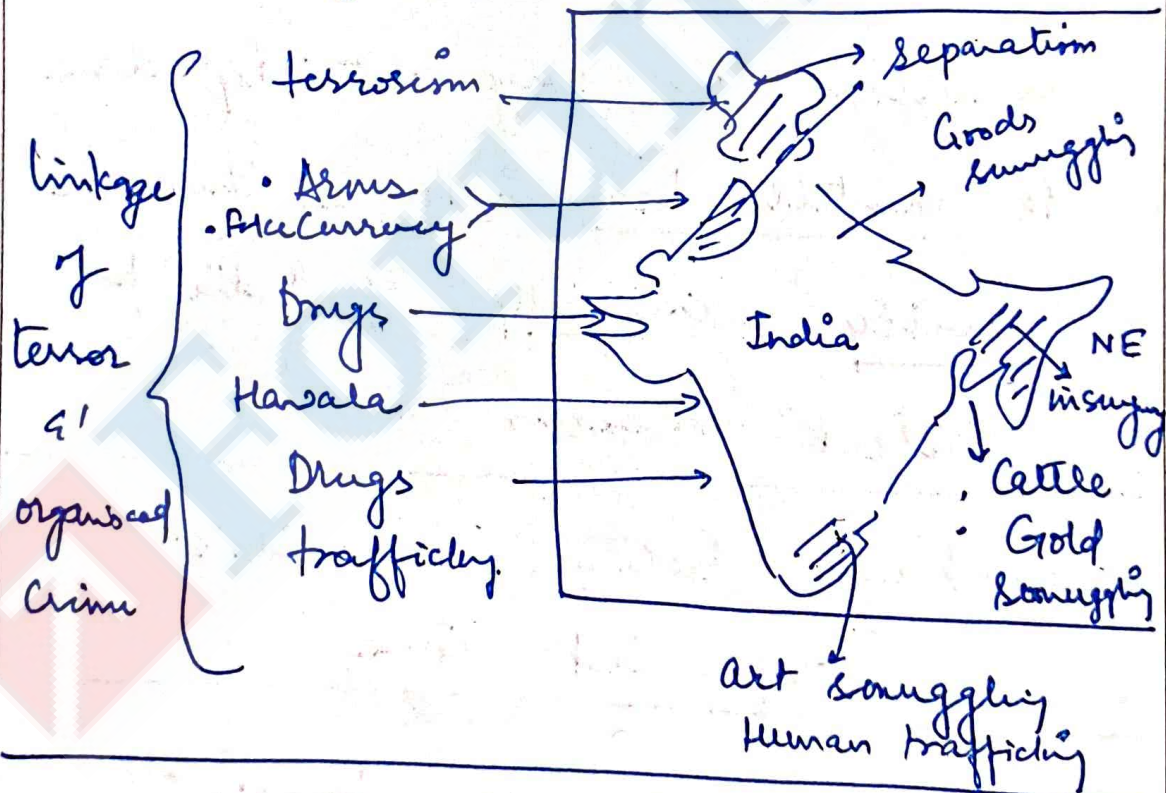 linkage
of
terror
&
organised
Crime
terrorism
• Arms
• Fake Currency
Drugs
Hawala
Drugs
trafficking
separatism
Goods
smuggling
India
NE
insurgency
• Cattle
• Gold
smuggling
Art smuggling
Human trafficking
Forum